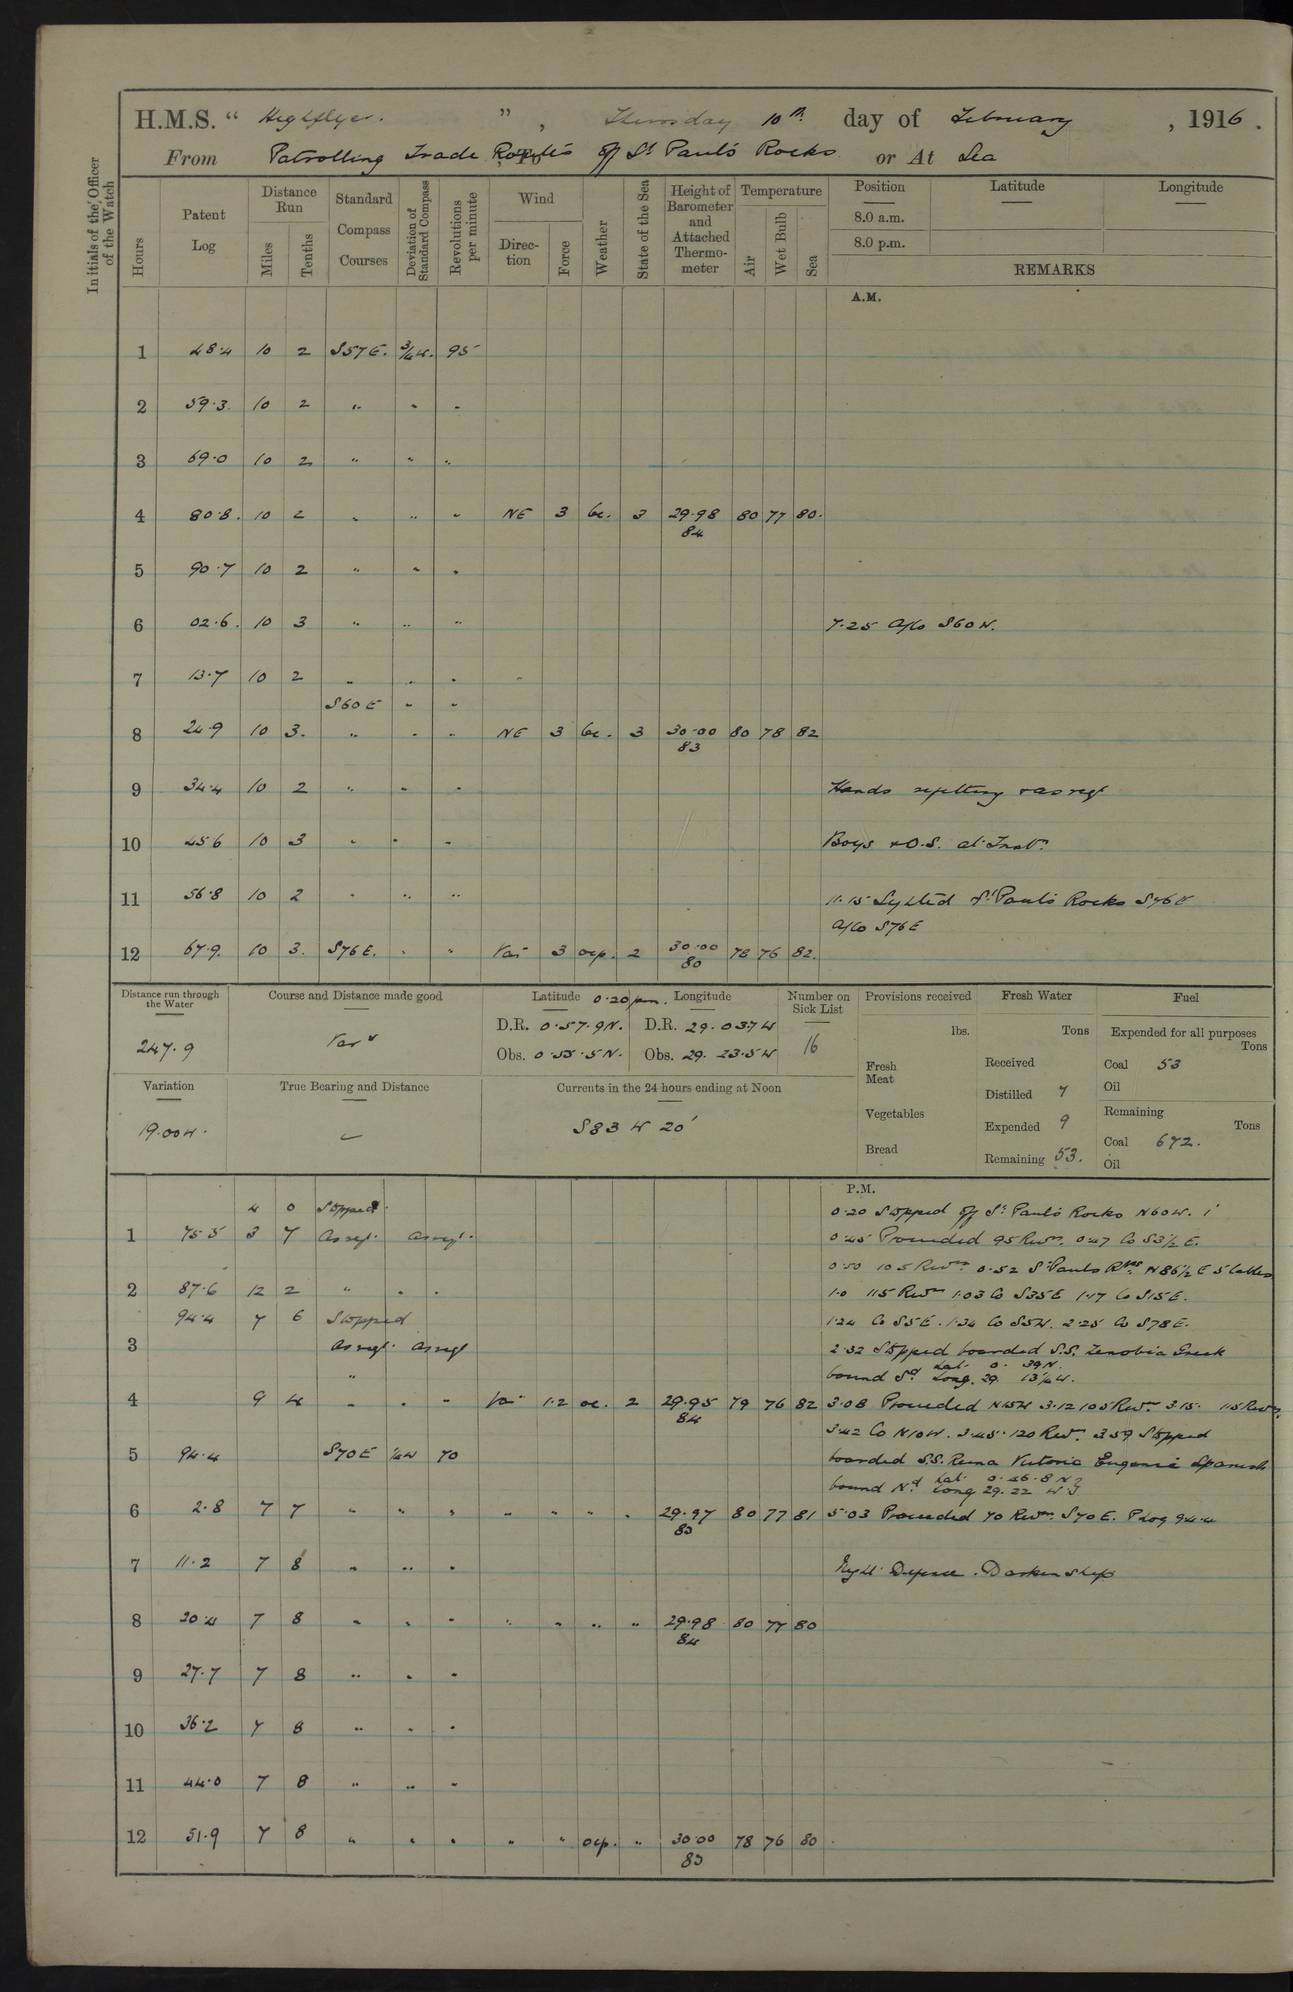 H.M.S. “ Highflyer. ” , Thursday 10th day of February , 1916 .
From Patrolling Trade Routes , To off St Paul's Rocks or At Sea
Initials of the Officer of the Watch
Hours
Patent Log
Distance Run
Miles
Tenths
Standard Compass Courses
Deviation of Standard Compass
Revolutions per minute
Wind
Direction
Force
Weather
State of the Sea
Height of Barometer and Attached Thermometer
Temperature
Air
Wet Bulb
Sea
Position Latitude Longitude
8.0 a.m.
8.0 p.m.
REMARKS
A.M.
1 48.4 10 2 S57E. 3/4 W. 95
2 59.3 10 2 " " "
3 69.0 10 2 " " "
4 80.8. 10 2 " " " NE 3 bc. 3 29.98 80 77 80.
84
5 90.7 10 2 " " "
6 02.6. 10 3 " " " 7.25 A/Co S60W.
7 13.7 10 2 " " "
S60E " "
8 24.9 10 3. " " " NE 3 bc. 3 30.00 80 78 82
83
9 34.4 10 2 " " " Hands refitting & as reqd
10 45.6 10 3 " " " Boys & O.S. at Instn.
11 56.8 10 2 " " " 11.15 Sighted St Paul's Rocks
A/Co S76E
12 67.9. 10 3. S76E. " " Var 3 ocp. 2 30.00 78 76 82.
80
Distance run through the Water
247.9
Course and Distance made good
Var s
Latitude 0.20 pm. Longitude
D.R. 0.57.9N. D.R. 29.03.7W
Obs. 0.55.5N. Obs. 29. 23.5W
Number on Sick List
16
Provisions received
lbs.
Fresh Meat
Vegetables
Bread
Fresh Water
Tons
Received
Distilled 7
Expended 9
Remaining 53.
Fuel
Expended for all purposes
Tons
Coal 53
Oil
Remaining
Tons
Coal 672.
Oil
Variation
19.00W.
True Bearing and Distance
Currents in the 24 hours ending at Noon
S83W 20'
P.M.
4 0 Stopped. 0.20 Stopped off St Paul's Rocks N60W. 1'
1 75.5 3 7 As reqd. as reqd. 0.45 Proceeded 95 Revs. 0.47 Co S3 1/2 E.
0.50 105 Revs 0.52 St Pauls Rks N86 1/2 E 5 Cables
2 87.6 12 2 " " " 1.0 115 Revs 1.03 Co S35E 1.17 Co S15E.
94.4 7 6 Stopped 1.24 Co S5E. 1.34 Co S5W. 2.25 Co S78E.
3 As reqd. As reqd 2.32 Stopped boarded S.S. Zenobia Greek
" bound Sd Lat. 0. 39N. Long. 29. 13 1/2 W.
4 9 4 " " " Var 1.2 oc. 2 29.95 79 76 82 3.08 Proceeded N15W 3.12 105 Revs 3.15. 115 Revs.
84
3.42 Co N10W. 3.45. 120 Revs. 3.59 Stopped
5 94.4 S70E 1/4W 70 boarded S.S. Reina Victoria Eugenie Spanish
bound Nd Lat. 0.46.8 N Long. 29.22 W
6 2.8 7 7 " " " " " " " 29.97 80 77 81 5.03 Proceeded 70 Revs. S70E. P Log 94.4
85
7 11.2 7 8 " " " Night Defence. Darken ship
8 20.4 7 8 " " " " " " " 29.98 80 77 80
84
9 27.7 7 8 " " "
10 36.2 7 8 " " "
11 44.0 7 8 " " "
12 51.9 7 8 " " " " " ocp. " 30.00 78 76 80
83